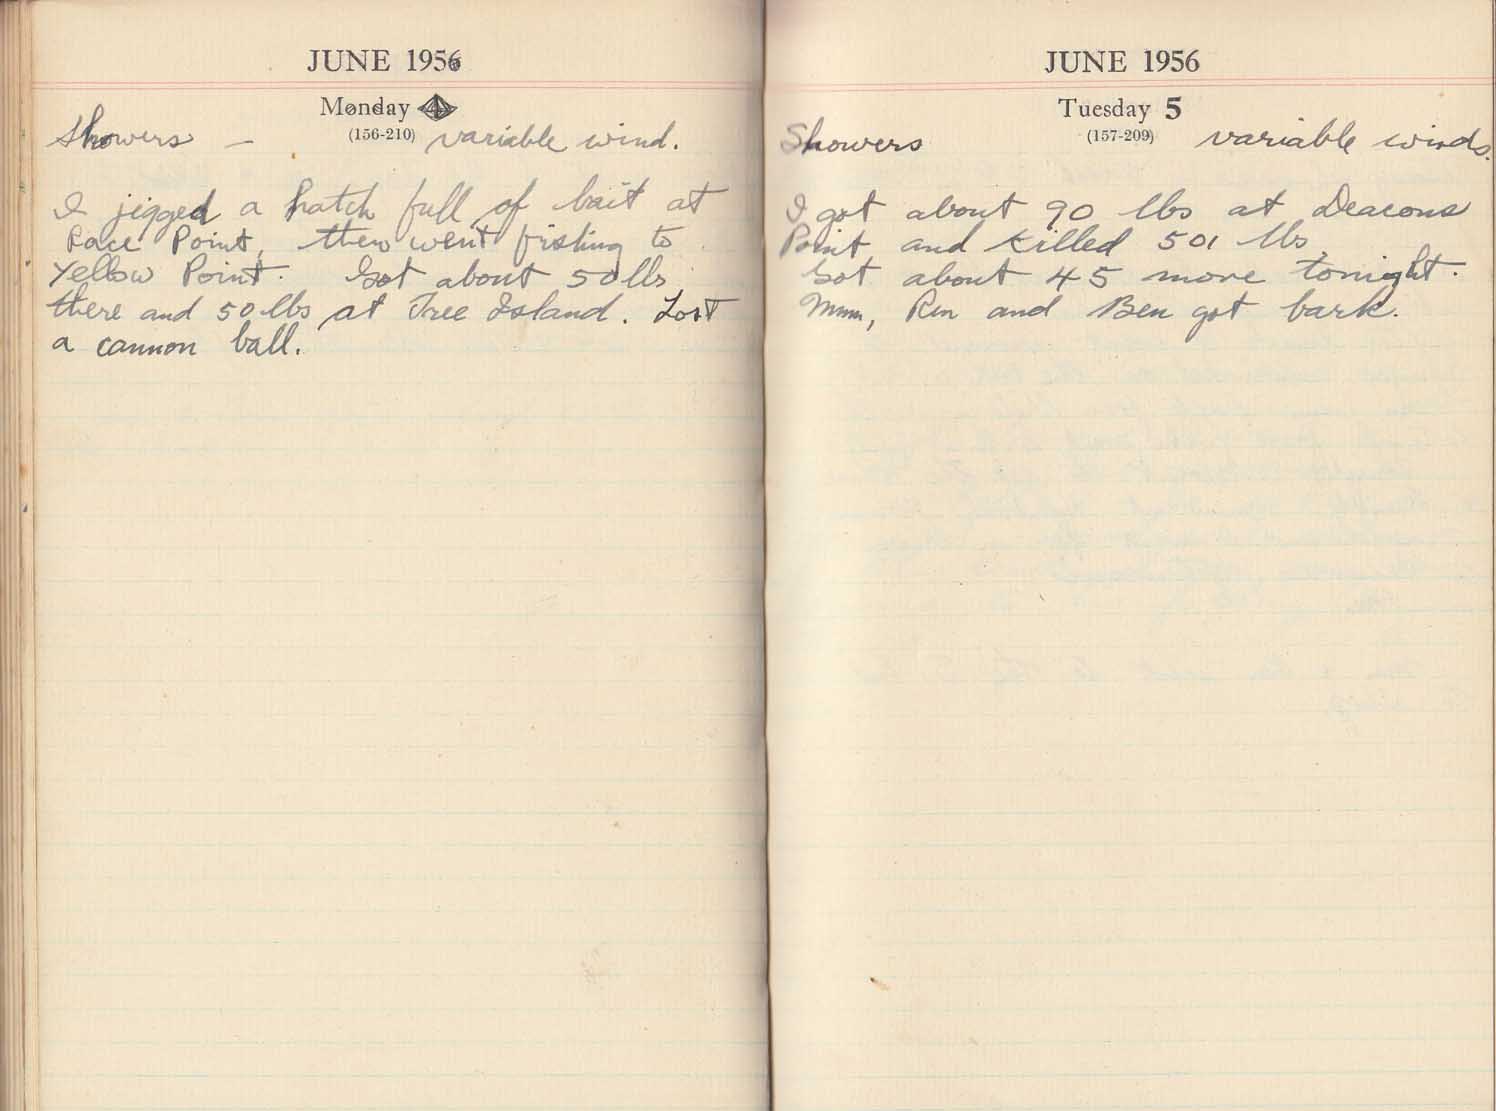 JUNE 1956
Monday 4
(156-210)
Showers – variable wind.
I jigged a hatch full of bait at
Race Point, then went fishing to
Yellow Point. Got about 50 lbs
there and 50 lbs at Tree Island. Lost
a cannon ball.
JUNE 1956
Tuesday 5
(157-209)
Showers variable winds.
I got about 90 lbs at Deacons
Point and killed 501 lbs
Got about 45 more tonight.
Mum, Ren and Ben got bark.